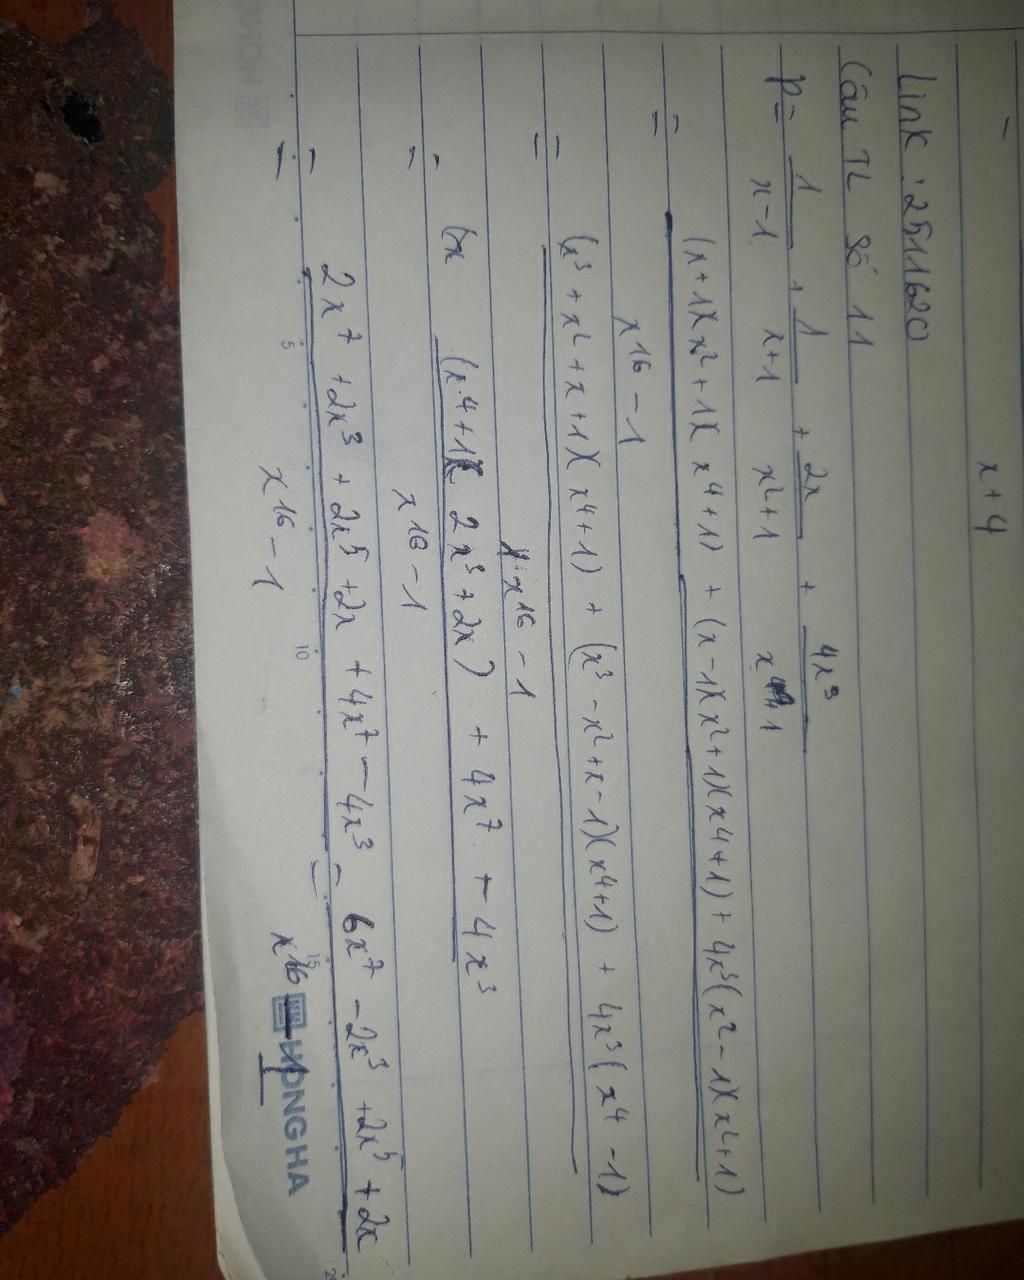 x + 4
Link : 2511620
Câu TL Số 11
P = 1/(x-1) + 1/(x+1) + 2x/(x²+1) + 4x³/(x⁴+1)
= ((x+1)(x²+1)(x⁴+1) + (x-1)(x²+1)(x⁴+1) + 4x³(x²-1)(x²+1))/(x¹⁶-1)
= ((x³+x²+x+1)(x⁴+1) + (x³-x²+x-1)(x⁴+1) + 4x³(x⁴-1))/(x¹⁶-1)
= ((x⁴+1)(2x³+2x) + 4x⁷ - 4x³)/(x¹⁶-1)
= (2x⁷+2x³+2x⁵+2x+4x⁷-4x³)/(x¹⁶-1) = (6x⁷-2x³+2x⁵+2x)/(x¹⁶-1)
HONG HA